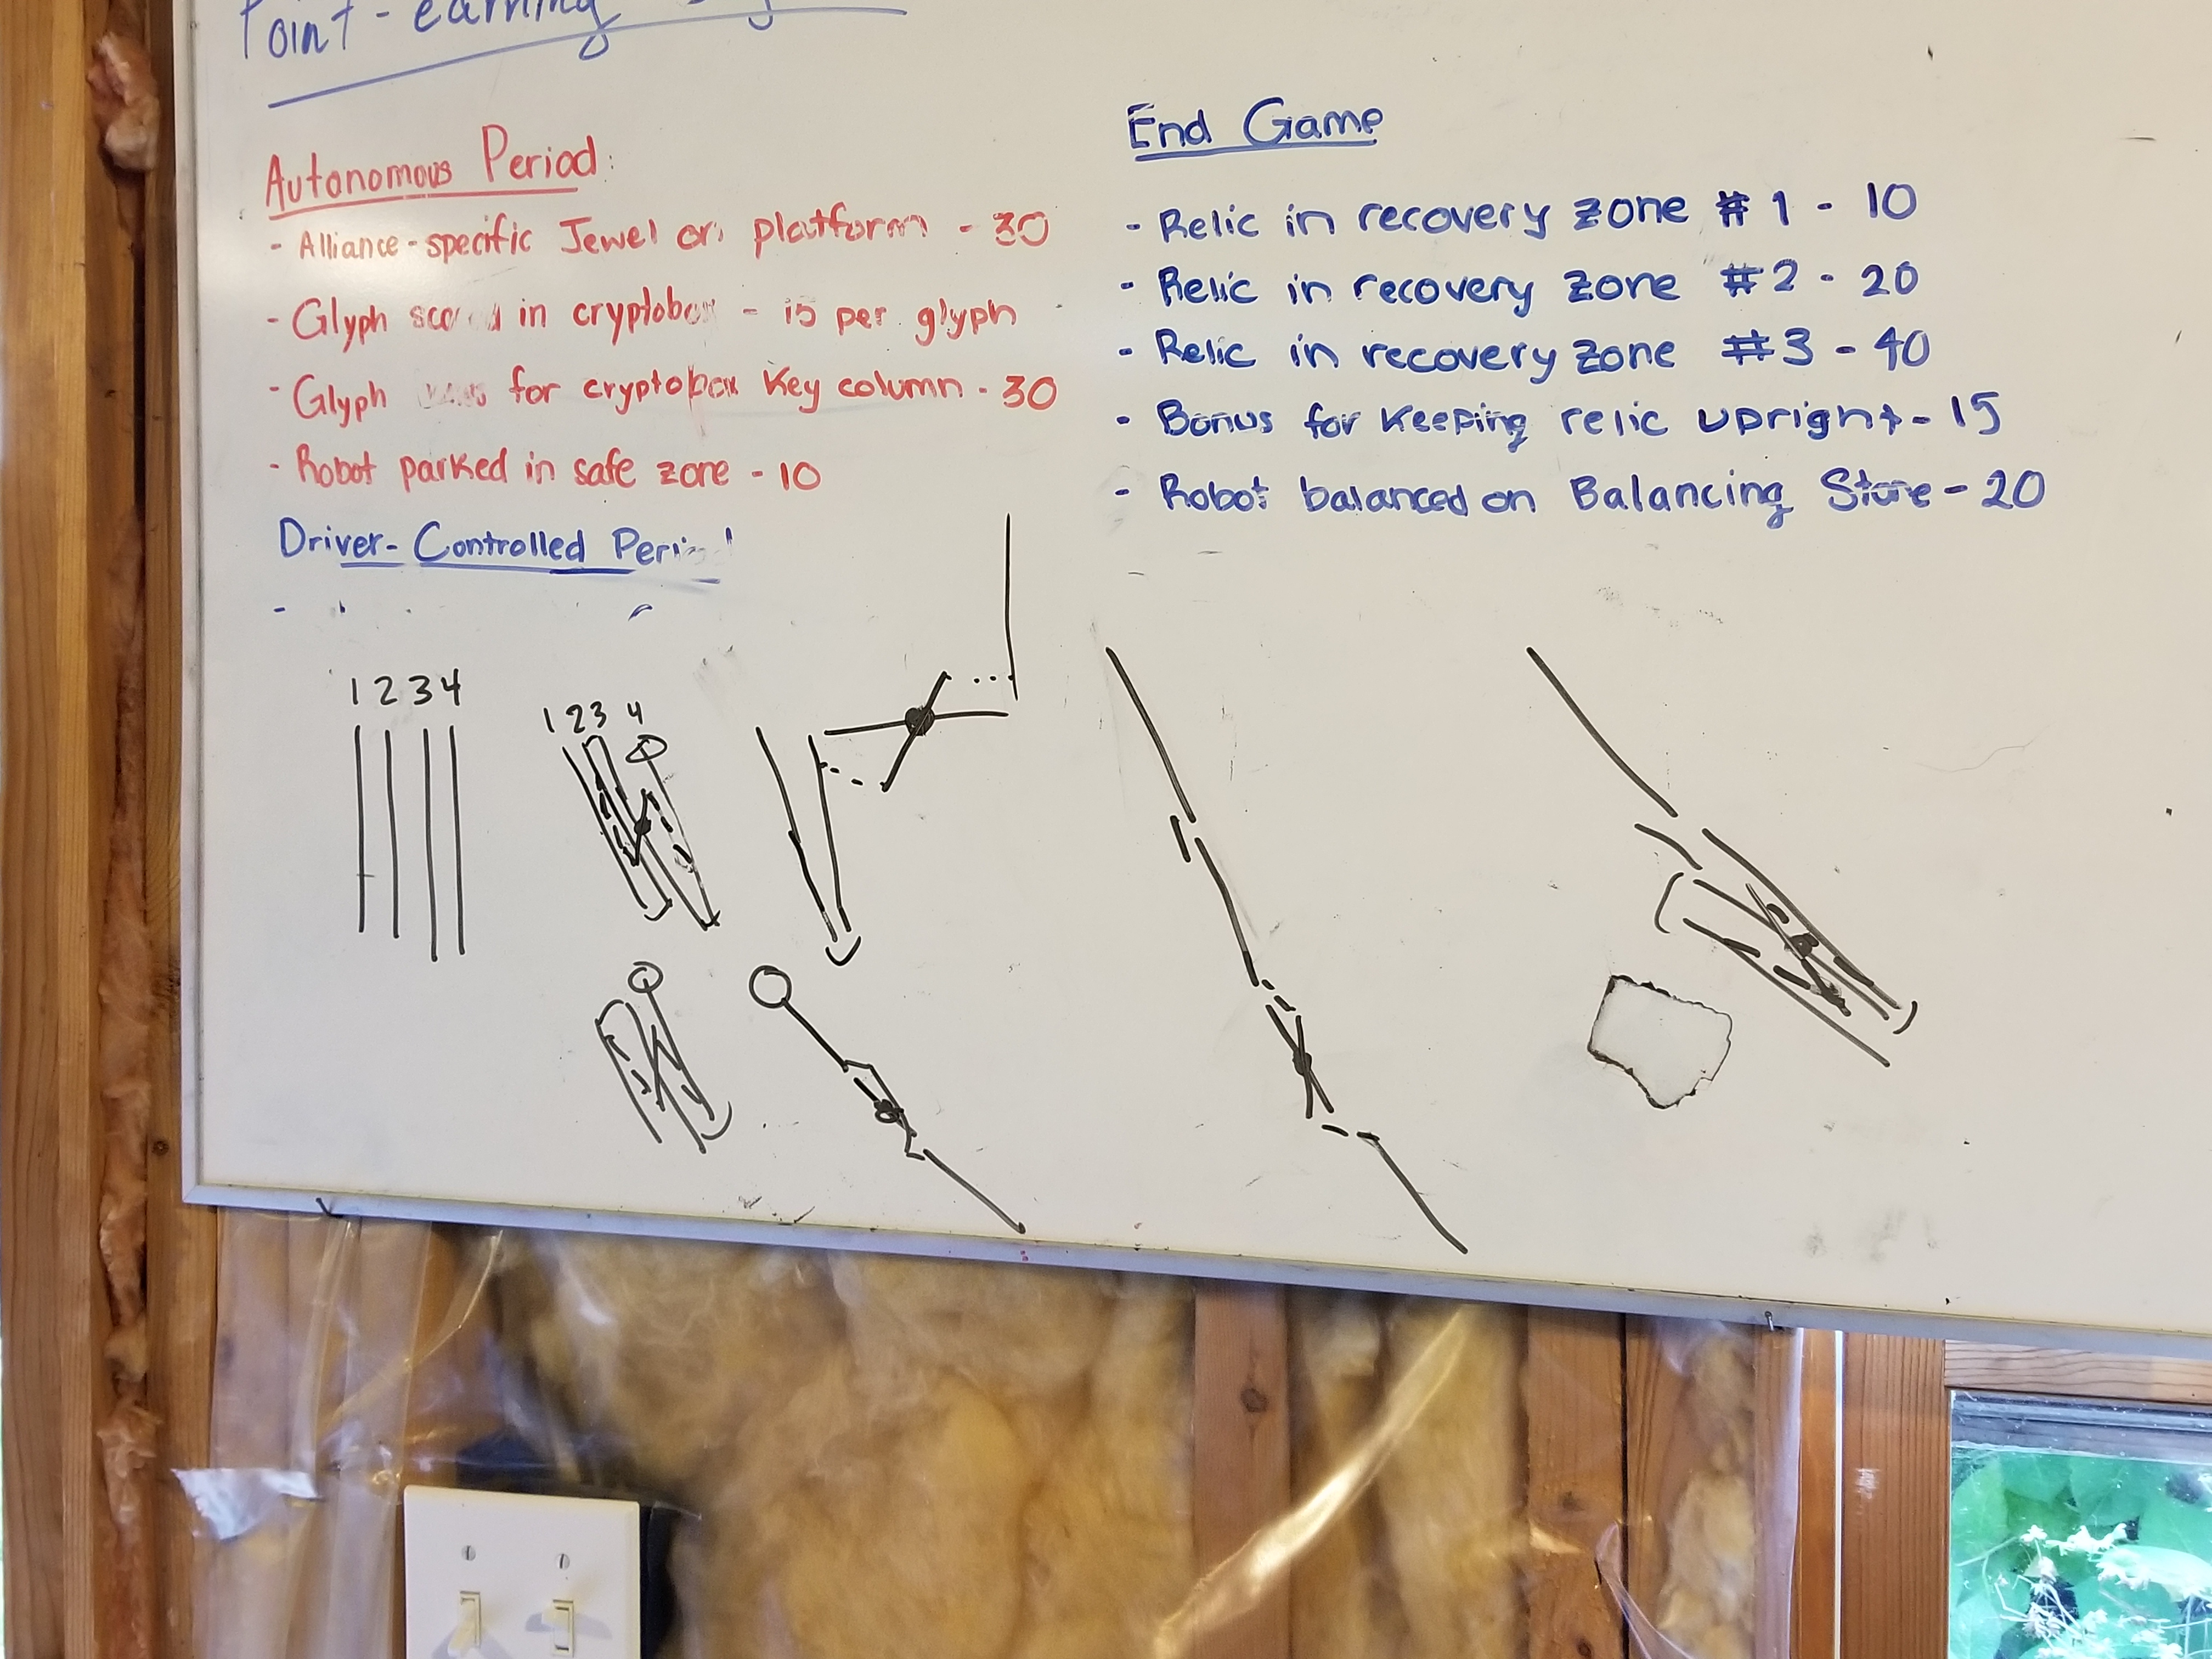 Point - earning
Autonomous Period:
- Alliance - specific Jewel on platform - 30
- Glyph scored in cryptobox - 15 per glyph
- Glyph for cryptobox Key column - 30
- Robot parked in safe zone - 10
Driver - Controlled Period
-
1 2 3 4
1 2 3 4
End Game
- Relic in recovery zone #1 - 10
- Relic in recovery zone #2 - 20
- Relic in recovery zone #3 - 40
- Bonus for Keeping relic upright - 15
- Robot balanced on Balancing Stone - 20